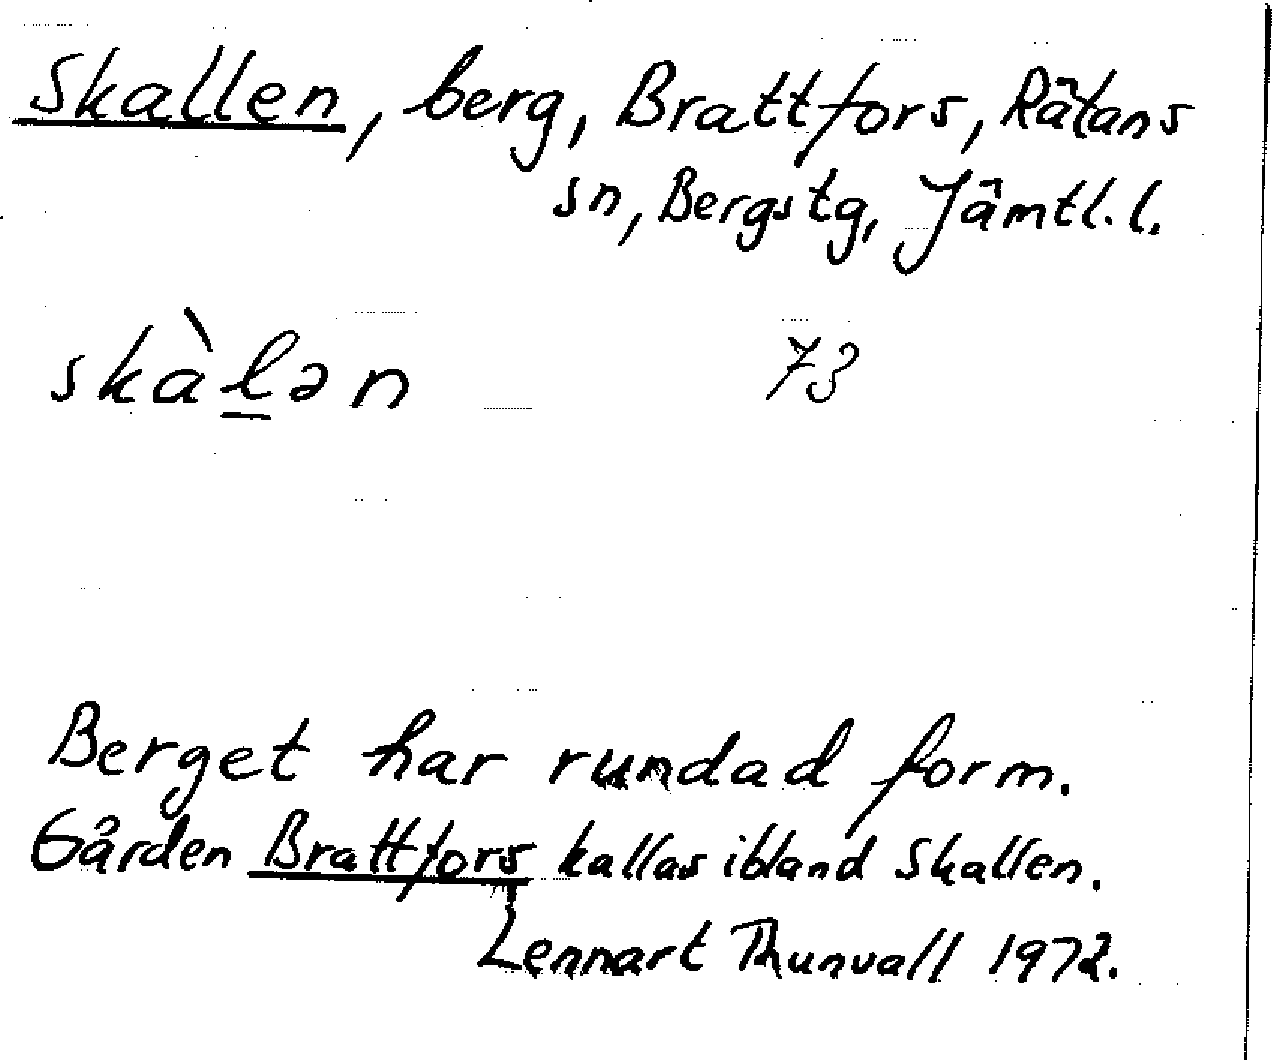 Skallen, berg, Brattfors, Rätans
sn, Bergs tg, Jämtl. l.
skàl̲ən 73
Berget har rundad form.
Gården Brattfors kallas ibland Skallen.
Lennart Thunvall 1972.